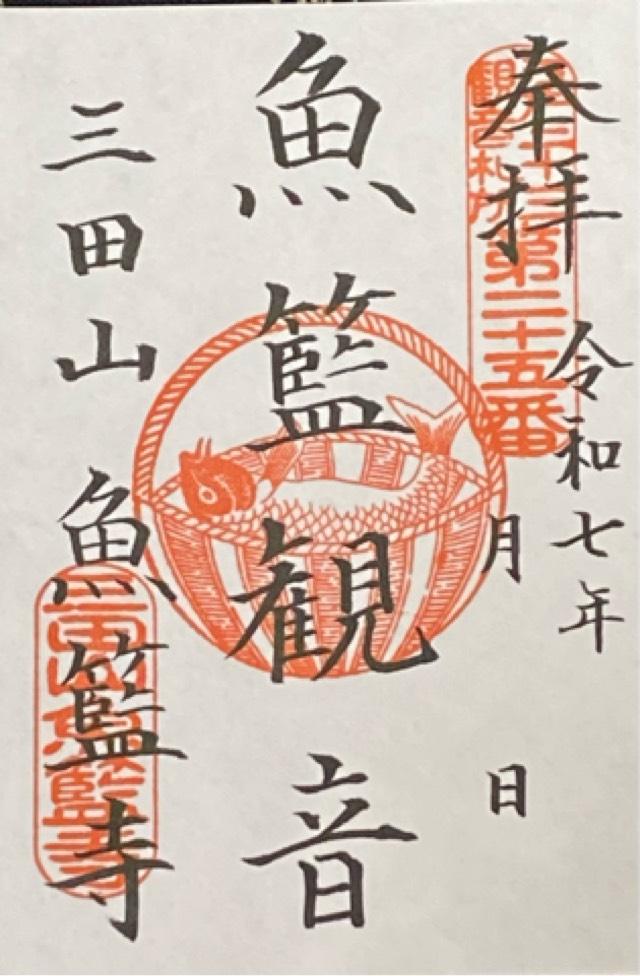 奉拝
令和七年
月 日
魚籃観音
三田山 魚籃寺
観音札所第二十五番
三田山魚籃寺